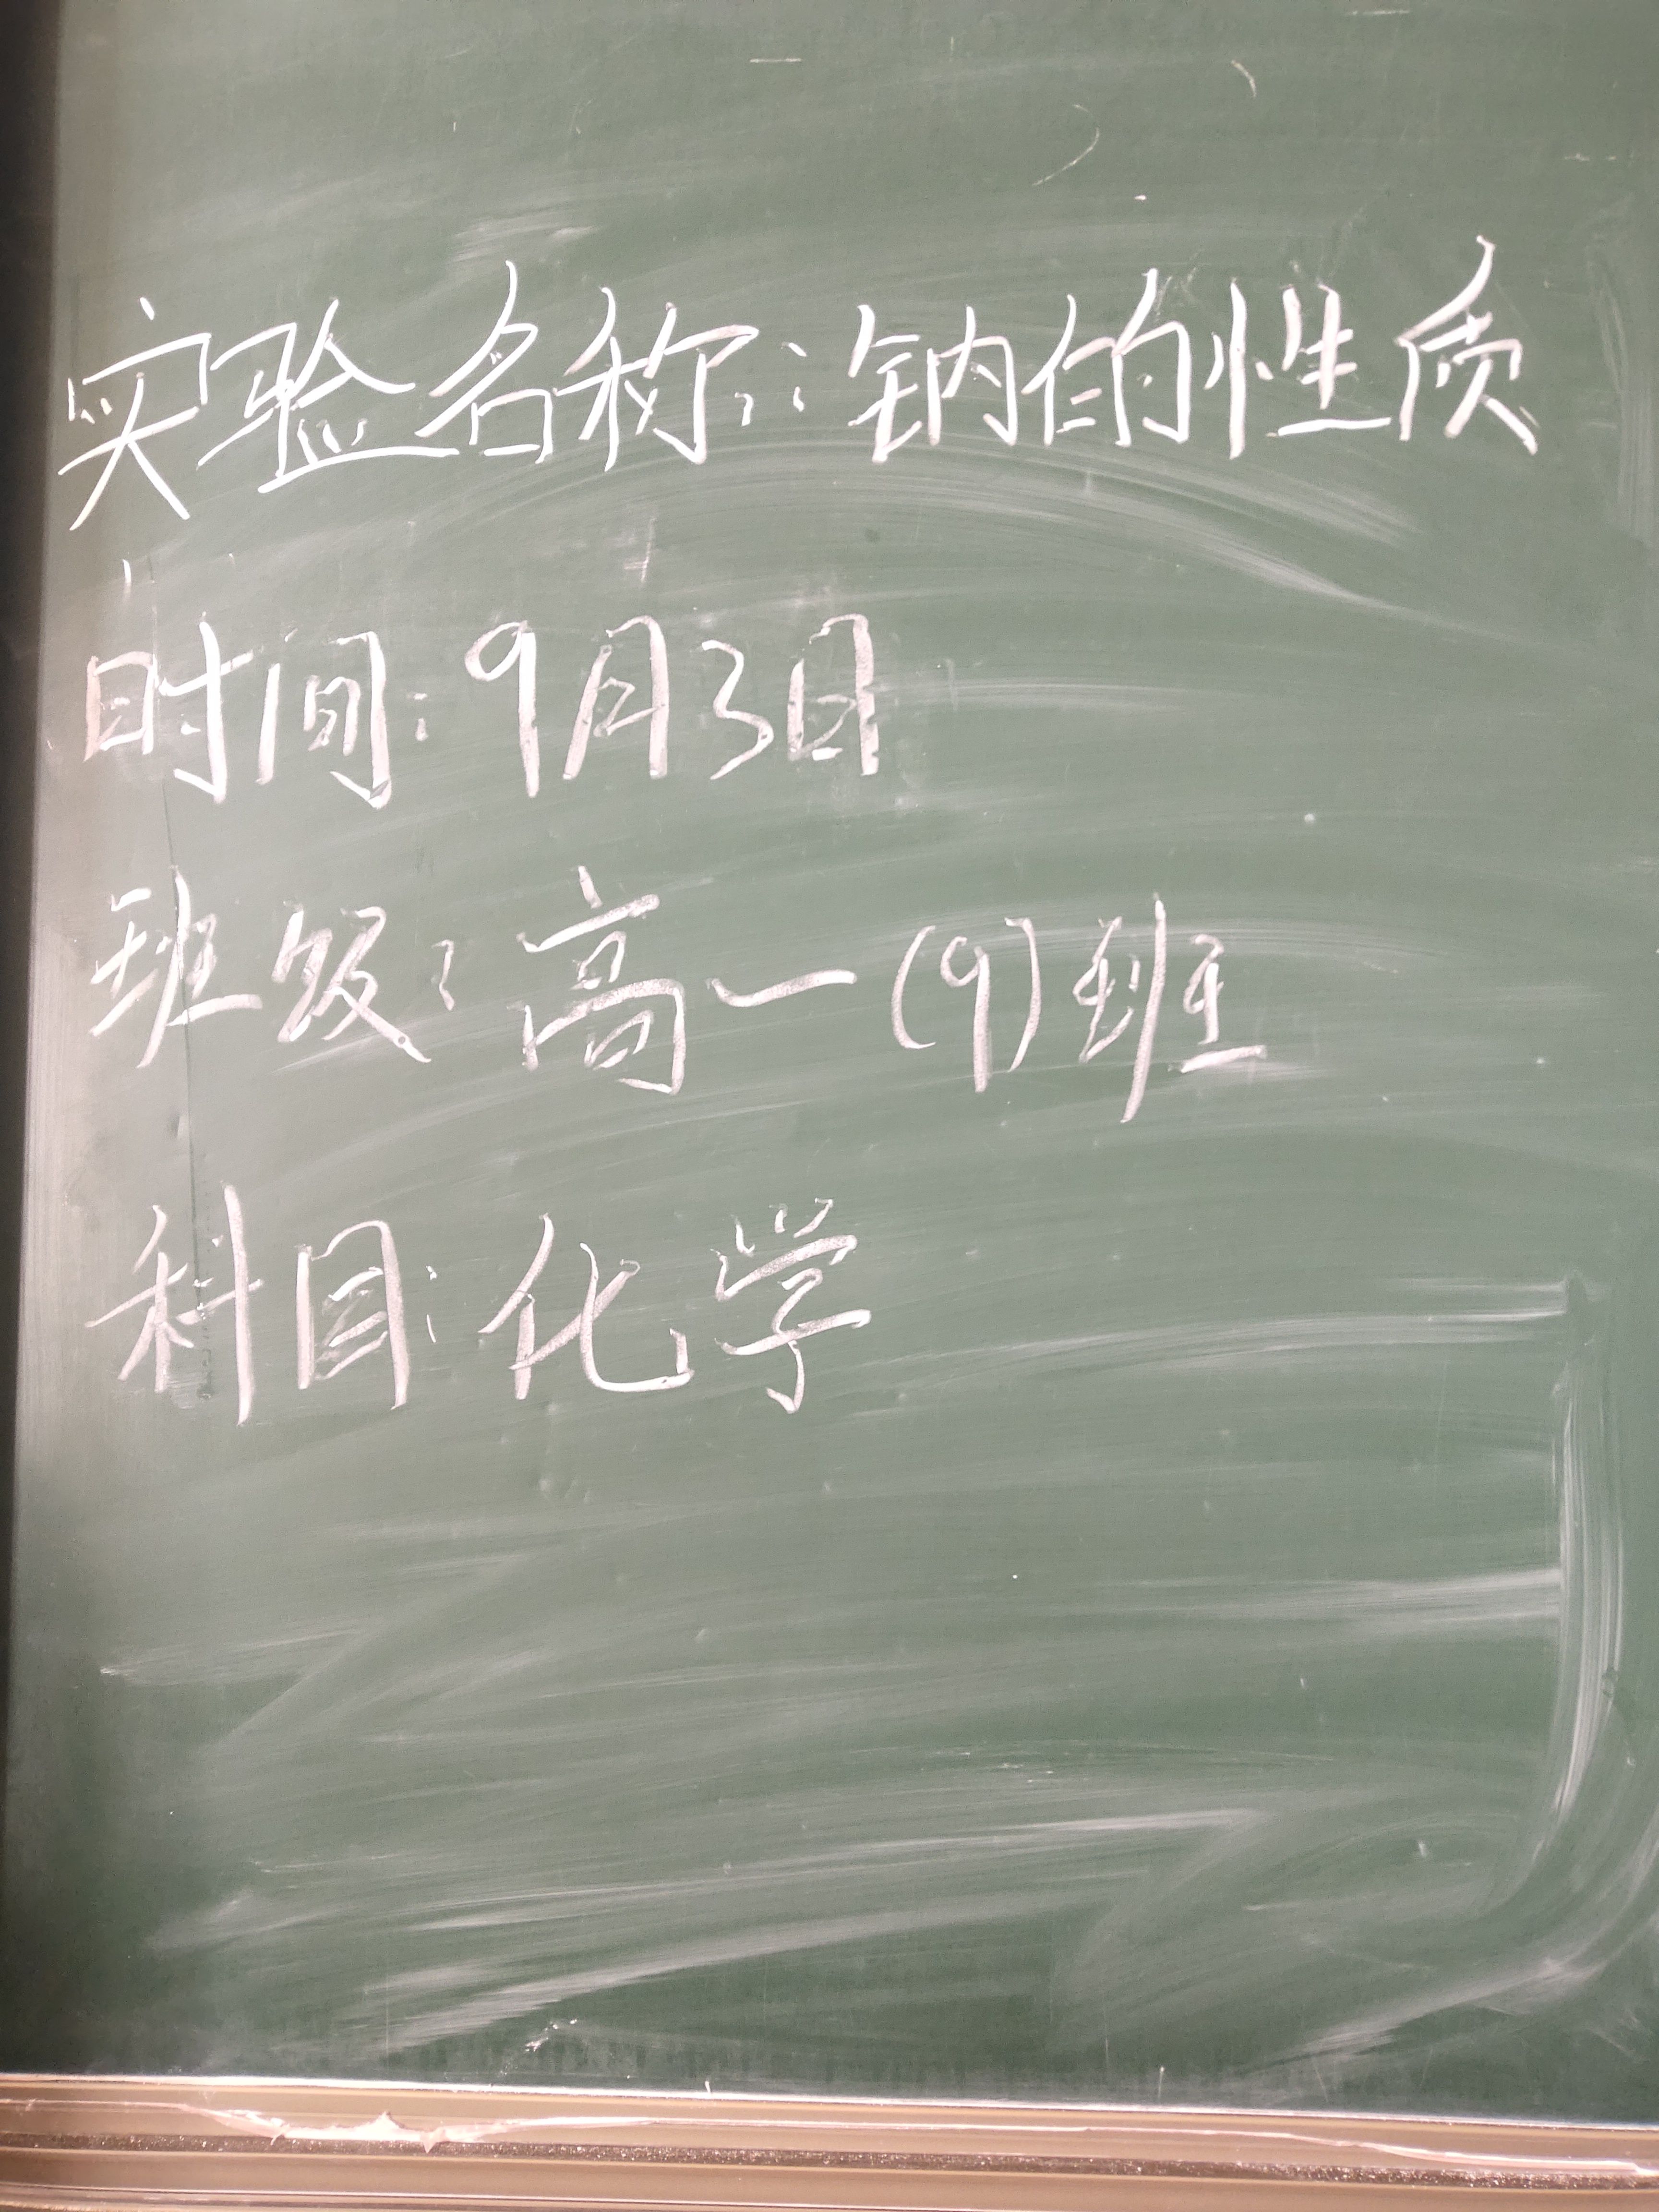 实验名称：钠的性质
时间：9月3日
班级：高一（9）班
科目：化学